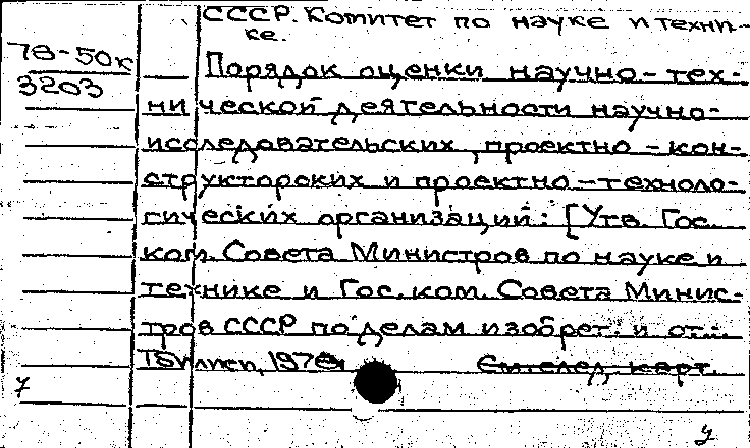 СССР. Комитет по науке и техни-
ке.
78-50к
3203
Порядок оценки научно-тех-
нической деятельности научно-
исследовательских, проектно-кон-
структорских и проектно-техноло-
гических организаций: [Утв. Гос.
ком. Совета Министров по науке и
технике и Гос. ком. Совета Минис-
тров СССР по делам изобрет. и от.
Тбилиси, 197
См. след. карт.
у